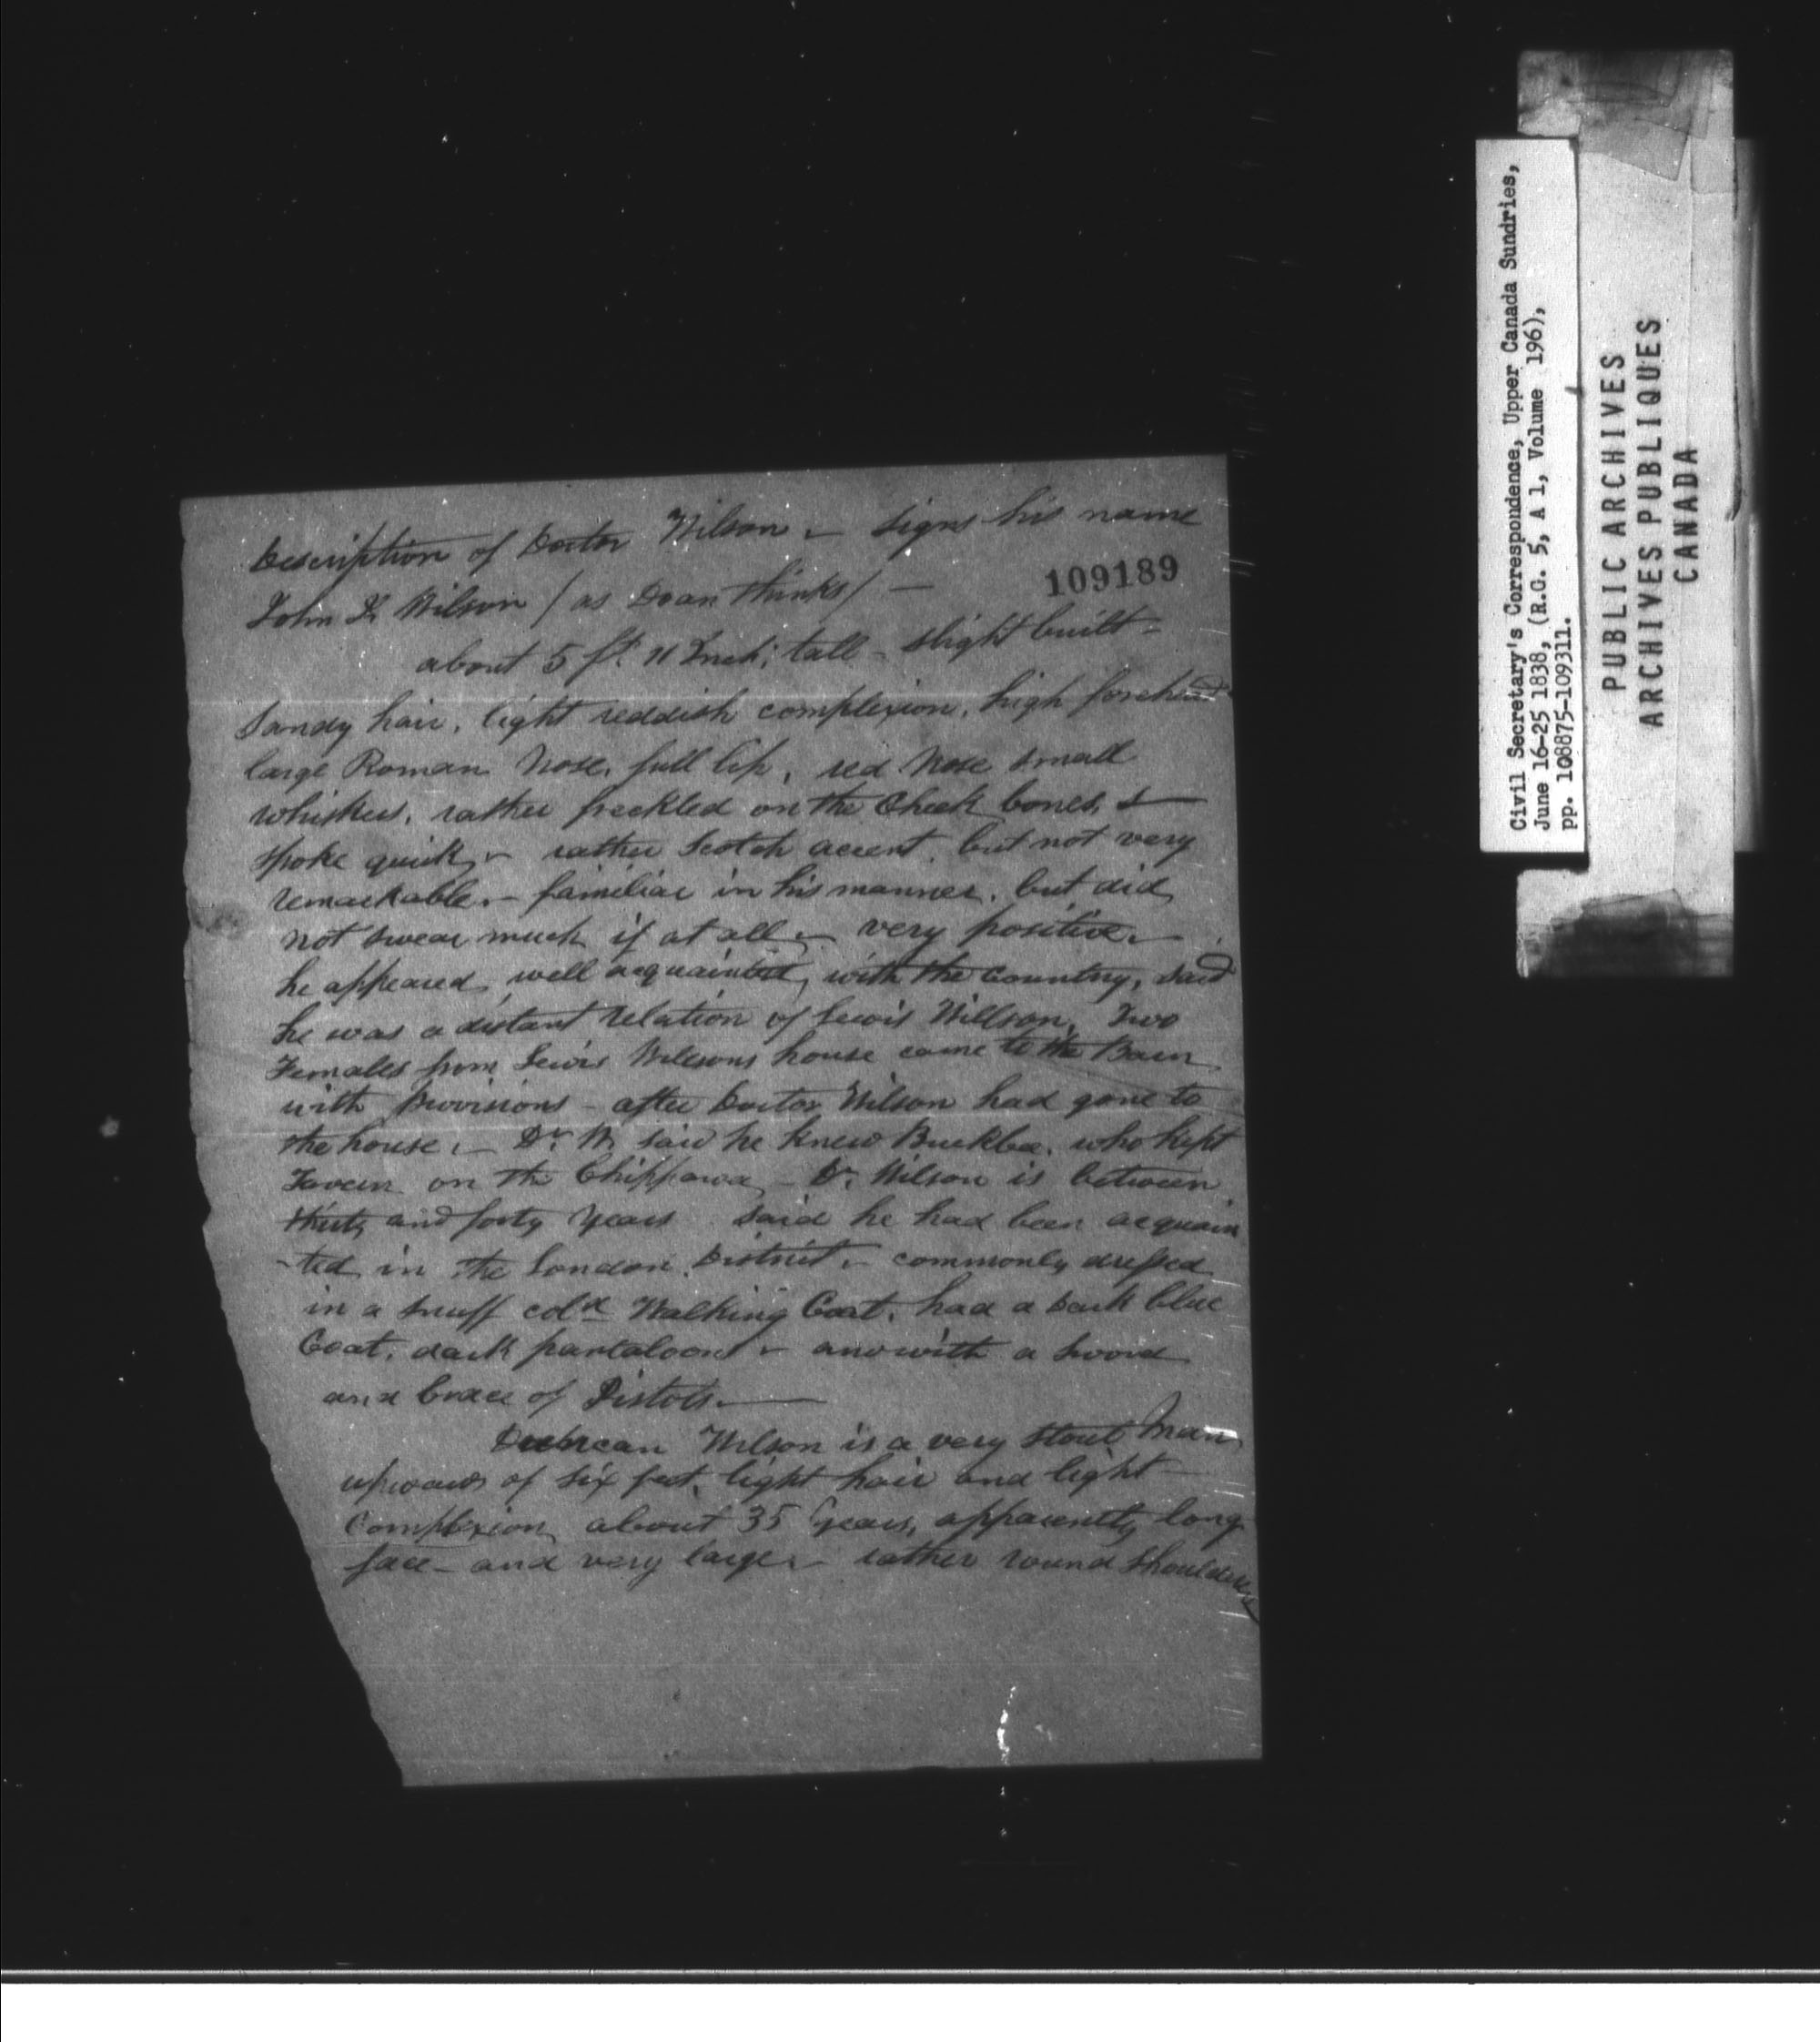 Description of Doctor Wilson. – signs his name
109189
John Wilson / as Doan thinks / –
about 5 ft. 11 Inch; tall – slight built –
Sandy hair, light reddish complexion, high forehead
large Roman Nose, full lip, red Nose small
whiskers, rather freckled on the Cheek bones, &
spoke quick, – rather Scotch accent, but not very
remarkable. – familiar in his manner, but did
not swear much if at all – very positive. –
he appeared well acquainted, with the Country, said
he was a distant relation of Lewis Willson, Two
Females from Lewis Willsons house came to the Barn
with Provisions – after Doctor Wilson had gone to
the house. – Dr. W. said he knew Buckbee, who kept
Tavern on the Chippawa, – Dr. Wilson is between
thirty and forty Years said he had been acquain
-ted in the London District. – commonly dressed
in a snuff cold Walking Coat, had a Dark blue
Coat, dark pantaloons – and with a Sword
and brace of Pistols. –
Duncan Wilson is a very stout Man
upwards of six feet, light hair and light –
Complexion about 35 Years, apparently long
face – and very large. – rather round Shoulders
Civil Secretary's Correspondence, Upper Canada Sundries,
June 16-25 1838, (R.G. 5, A 1, Volume 196),
pp. 108875-109311.
PUBLIC ARCHIVES
ARCHIVES PUBLIQUES
CANADA